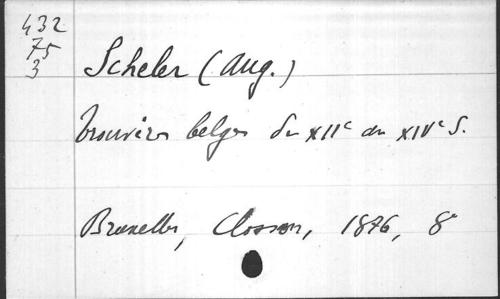 432
75
3
Scheler (Aug.)
Trouvères belges du XIIe au XIVe S.
Bruxelles, Closson, 1876, 8°